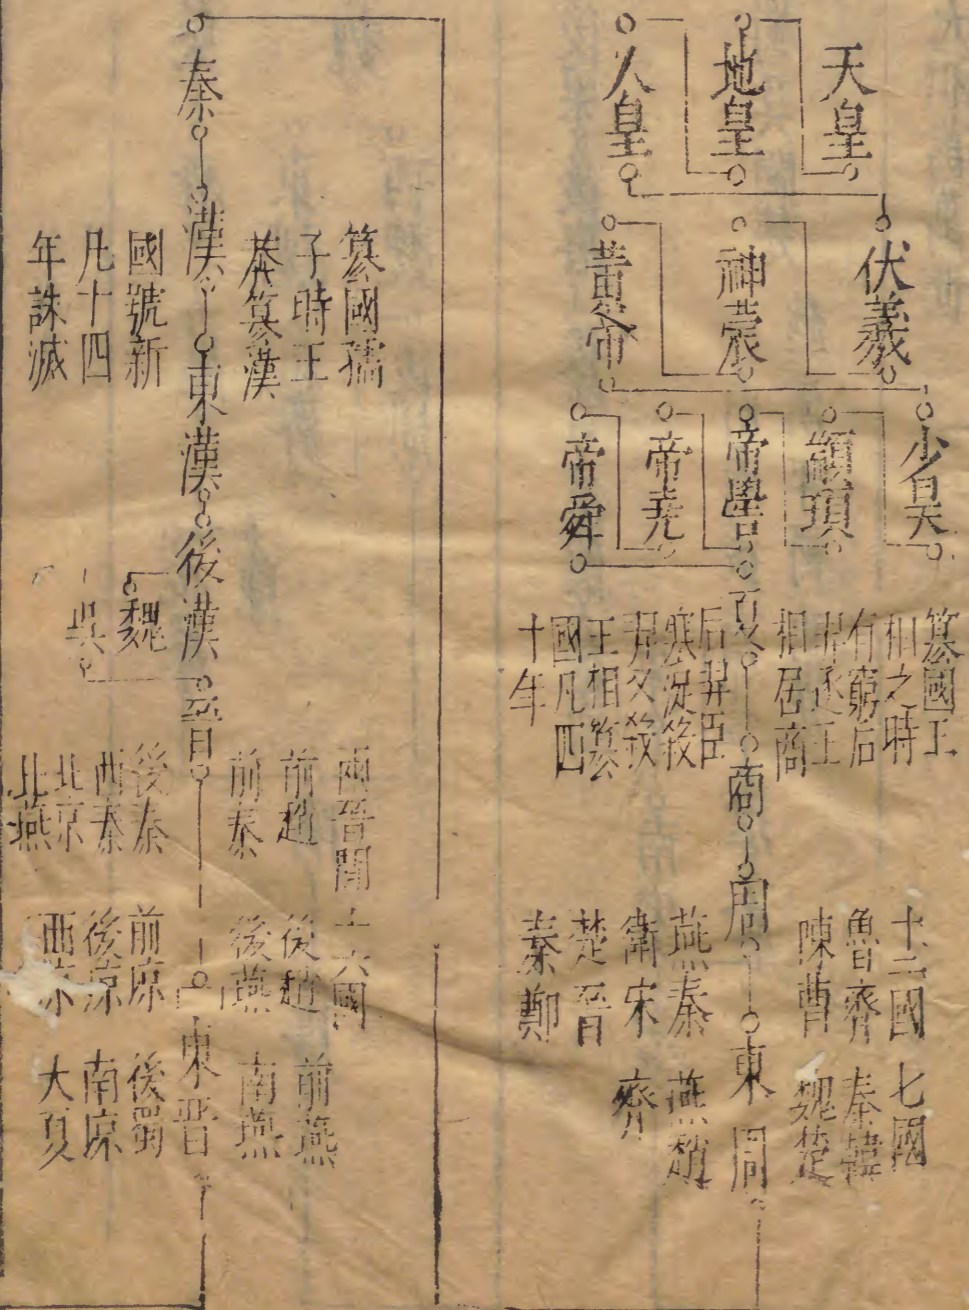 天皇
地皇
人皇
伏羲
神農
黃帝
少昊
顓頊
帝嚳
帝堯
帝舜
夏
篡國王
相之時
有窮后
羿逐王
相居商
后羿臣
寒浞殺
羿又殺
王相篡
國凡四
十年
商
周
十二國
魯齊
陳曹
燕秦
衛宋
楚晉
秦鄭
七國
秦韓
魏楚
燕趙
齊
東周
秦
漢
篡國孺
子時王
莽篡漢
國號新
凡十四
年誅滅
東漢
後漢
魏
吳
晉
兩晉間十六國
前趙 後趙 前燕
前秦 後燕 南燕
後秦 前凉 後蜀
西秦 後凉 南凉
北凉 西凉 大夏
北燕
東晉